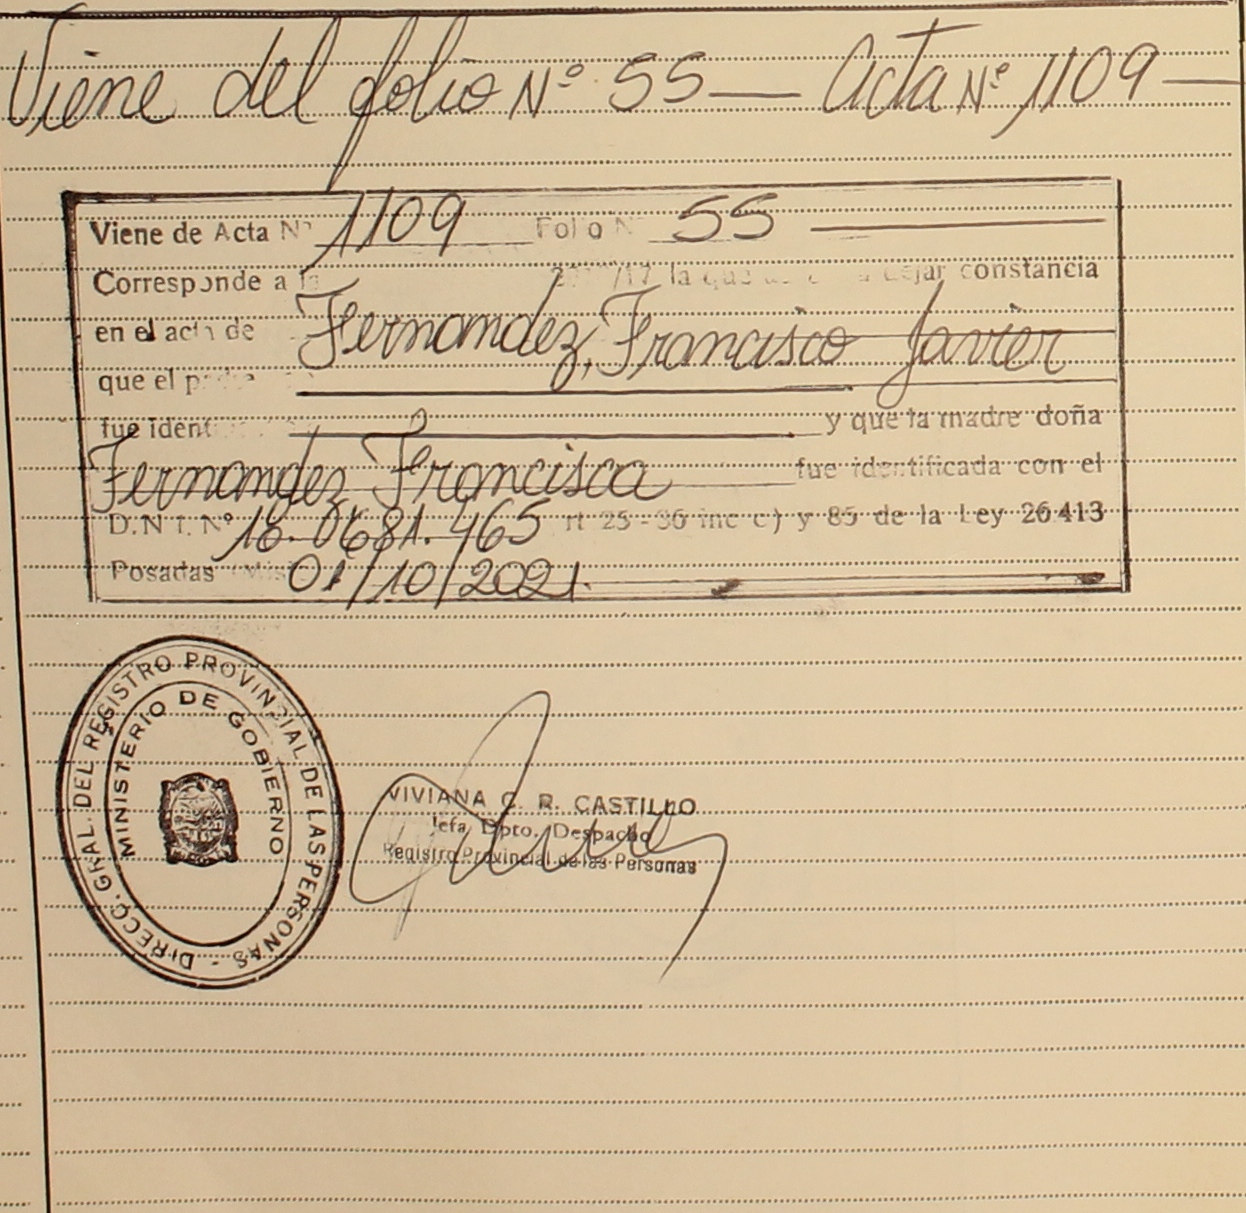 Viene del folio Nº 55 — Acta Nº 1109 —
Viene de Acta Nº 1109 Folio N 55
Corresponde a la la que dejar constancia
en el acta de Fernandez, Francisco Javier
que el padre
fue ident y que la madre doña
Fernandez Francisca fue identificada con el
D.N.I. Nº 18.0681.465 rt 25 - 36 inc c) y 85 de la Ley 26413
Posadas (Mis 01/10/2021.
DIRECC. GRAL. DEL REGISTRO PROVINCIAL DE LAS PERSONAS -
MINISTERIO DE GOBIERNO
VIVIANA C. R. CASTILLO
Jefa Dpto. Despacho
Registro Provincial de las Personas